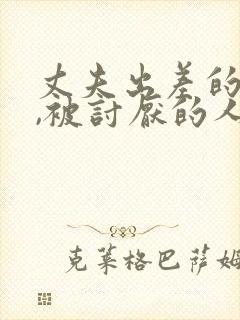 丈夫出差的
,被討厭的人
克萊格巴薩姆